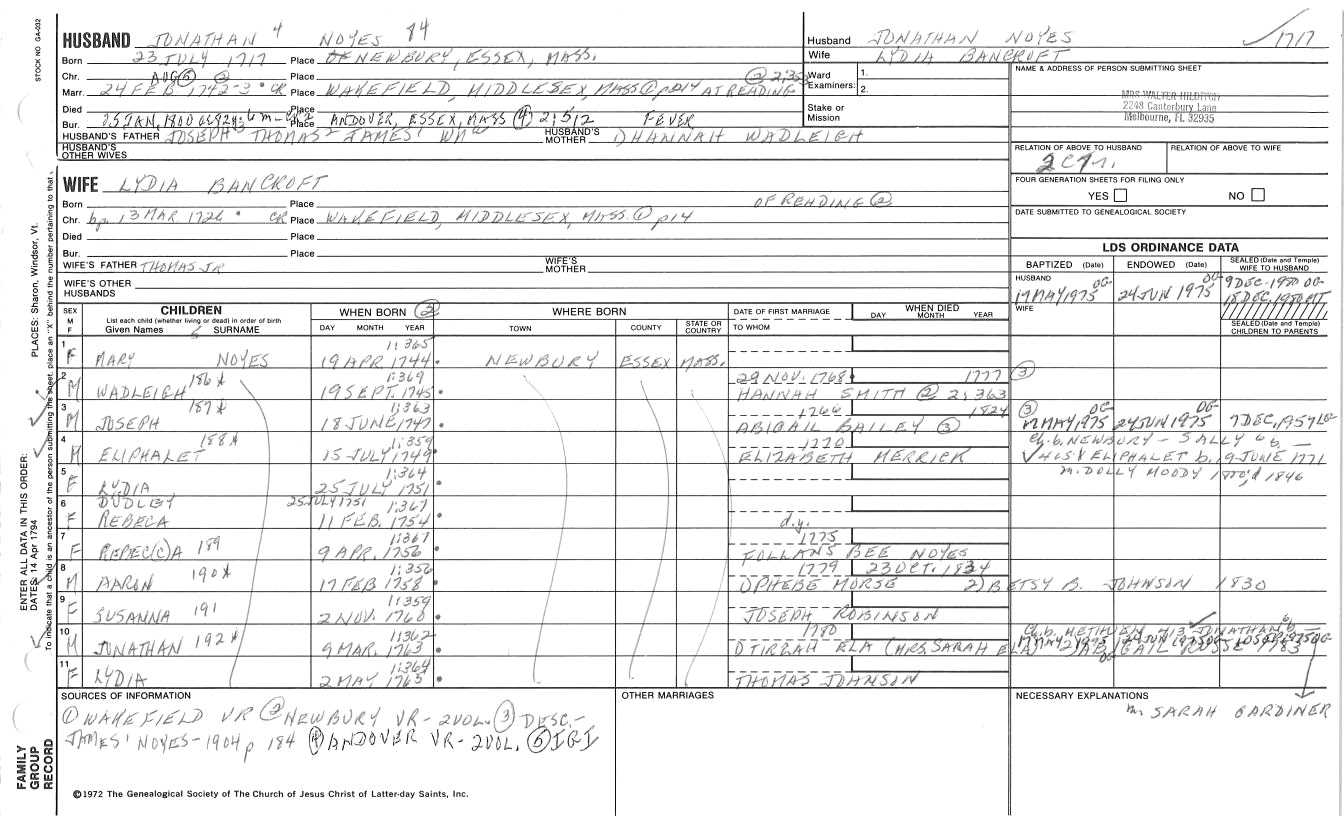 STOCK NO GA-032
HUSBAND JONATHAN 4 NOYES 84
Born 23 JULY 1717 Place OF NEWBURY, ESSEX, MASS.
Chr. AUG ⑤ ②
Marr. 24 FEB 1742-3 CR Place WAKEFIELD, MIDDLESEX, MASS ① p214 AT READING
Died
Bur. Place ANDOVER, ESSEX, MASS ④ 2;512 FEVER
HUSBAND'S FATHER JOSEPH 3 THOMAS 2 JAMES 1 HUSBAND'S MOTHER HANNAH WADLEIGH
HUSBAND'S OTHER WIVES
Husband JONATHAN NOYES
Wife LYDIA BANCROFT
1717
Ward Examiners: 1. 2.
Stake or Mission
NAME & ADDRESS OF PERSON SUBMITTING SHEET
2248 Canterbury Lane
Melbourne, FL 32935
RELATION OF ABOVE TO HUSBAND RELATION OF ABOVE TO WIFE
FOUR GENERATION SHEETS FOR FILING ONLY
YES NO
DATE SUBMITTED TO GENEALOGICAL SOCIETY
WIFE LYDIA BANCROFT
Born Place OF READING ②
Chr. bp 13 MAR 1726 CR Place WAKEFIELD, MIDDLESEX, MASS ① p14
Died Place
Bur. Place
WIFE'S FATHER THOMAS JR WIFE'S MOTHER
WIFE'S OTHER HUSBANDS
LDS ORDINANCE DATA
BAPTIZED (Date) ENDOWED (Date) SEALED (Date and Temple) WIFE TO HUSBAND
HUSBAND 17 MAY 1975 OG 24 JUN 1975 OG 9 DEC 1980 OG
WIFE
SEALED (Date and Temple) CHILDREN TO PARENTS
SEX M F CHILDREN WHEN BORN ② WHERE BORN DATE OF FIRST MARRIAGE WHEN DIED
List each child (whether living or dead) in order of birth
Given Names SURNAME DAY MONTH YEAR TOWN COUNTY STATE OR COUNTRY TO WHOM DAY MONTH YEAR
1 F MARY NOYES 1;365 19 APR. 1744 NEWBURY ESSEX MASS.
2 M WADLEIGH 186* 1;369 19 SEPT. 1745 29 NOV. 1768 1777 ③
HANNAH SMITH ② 2;363
3 M JOSEPH 187* 1;363 18 JUNE 1747 1766 1824 ③
ABIGAIL BAILEY ③ 17 MAY 1975 OG 24 JUN 1975 OG 7 DEC. 1957 LG
4 M ELIPHALET 188* 1;359 15 JULY 1749 1770 Ch. b. NEWBURY - SALLY
ELIZABETH MERRICK ELIPHALET b. 9 JUNE 1771
m. DOLLY MOODY 1846
5 F LYDIA 1;364 25 JULY 1751
6 F DUDLEY 25 JULY 1751 1;367
REBECA 11 FEB. 1754 d.y.
7 F REBEC(C)A 189 1;367 9 APR. 1756 1775
FOLLANSBEE NOYES
8 M AARON 190* 1;356 17 FEB 1758 1779 23 OCT. 1834
PHEBE MORSE 2) BETSY B. JOHNSON 1830
9 F SUSANNA 191 1;359 2 NOV. 1760
JOSEPH ROBINSON
10 M JONATHAN 192* 1;362 9 MAR. 1763 1780 Ch. b. METHUEN 413 JONATHAN
TIRZAH ELA (MRS. SARAH ELA) 17 MAY 1975 OG 24 JUN 1975 OG
11 F LYDIA 1;364 2 MAY 1765
THOMAS JOHNSON
SOURCES OF INFORMATION OTHER MARRIAGES NECESSARY EXPLANATIONS
① WAKEFIELD VR ② NEWBURY VR - 2 VOL. ③ DESC.-
JAMES' NOYES - 1904 p 184 ④ ANDOVER VR - 2 VOL. ⑤ IGI
m. SARAH GARDINER
©1972 The Genealogical Society of The Church of Jesus Christ of Latter-day Saints, Inc.
FAMILY GROUP RECORD
ENTER ALL DATA IN THIS ORDER:
DATES: 14 Apr 1794
PLACES: Sharon, Windsor, Vt.
To indicate that a child is an ancestor of the person submitting the sheet, place an "X" behind the number pertaining to that